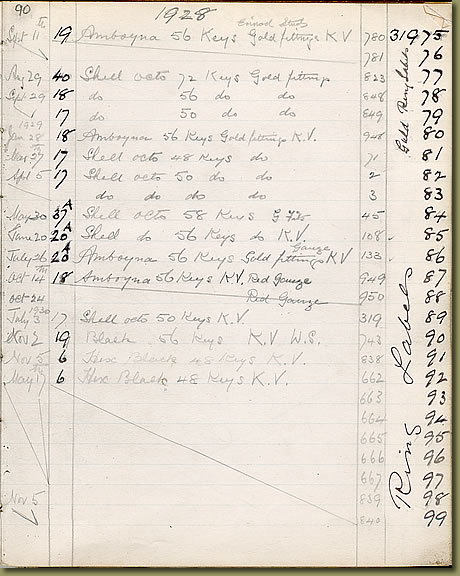 90 1928
Sept 11 19 Amboyna 56 Keys Gold fittings K.V 780 31975
781 76
Aug 29 40 Shell octs 72 Keys Gold fittings 823 77
Sept 29 18 do 56 do do 848 78
17 do 50 do do 849 79
1929
Jan 28 18 Amboyna 56 Keys Gold fittings K.V. 80
Mar 27 17 Shell octs 48 Keys do 71 81
Sept 5 17 Shell octs 50 do do 2 82
do do do do 3 83
May 30 37A Shell octs 58 Keys 45 84
June 20 20A Shell do 56 Keys do K.V. 108 85
July 26 20A Amboyna 56 Keys Gold fittings Gauze K.V 133 86
Oct 14 18 Amboyna 56 Keys K.V. Red Gauze 949 87
Oct 24 Red Gauze 950 88
1930
July 3 17 Shell octs 50 Keys K.V. 319 89
Nov 2 19 Black 56 Keys K.V W.S. 743 90
Nov 5 6 Hex Black 48 Keys K.V. 838 91
May 17 6 Hex Black 48 Keys K.V. 662 92
663 93
664 94
665 95
666 96
667 97
Nov 5 839 98
840 99
Ring Labels